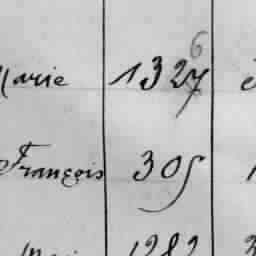 Marie 1327 6
François 305
1282